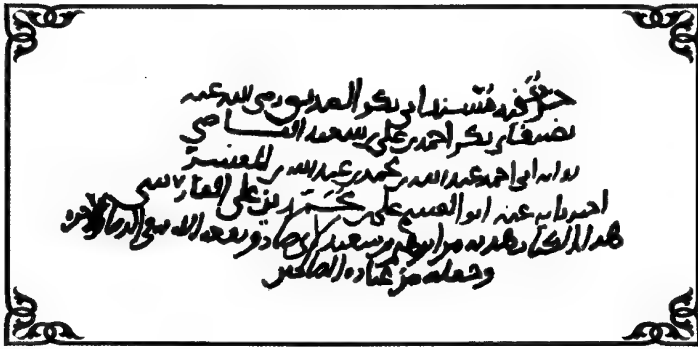 جزء فيه مسند ابي بكر الصديق رضي الله عنه
تصنيف ابي بكر احمد بن علي بن سعيد القاضي
رواية ابي احمد عبد الله بن محمد بن عبد الله بن المفسر
اخبرنا به عنه ابو القسم علي بن محمد بن علي الفارسي
هذا الكتاب لهديه من ابرهيم بن سعيد نفعه الله به في الدنيا والاخرة
وجعله من عباده الصالحين